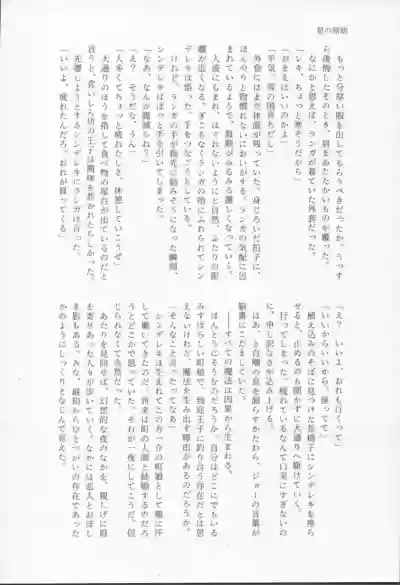 もっと分厚い服を出してもらうべきだったか。うっす
ら後悔したそのとき、肩をあたたかいものが覆った。
なにかと思えば、ランガが着ていた外套だった。
「レキ、ちょっと寒そうだから」
「おまえはいいのかよ」
「平気。雪の国育ちだし」
外套にはまだ体温が残っていた。身じろいだ拍子に、
ほんのりと嗅ぎ慣れないにおいがする。ランガの気配に包
まれているようで、鼓動がみるみる激しくなっていく。
人波にもまれ、はぐれないようにと自然、ふたりの距
離が近くなる。ぎこちなくランガの指にふれられてシン
デレキは悟った。手をつなぐつもりだ。
けれど、ランガの手が指先に絡みそうになった瞬間、
シンデレキはぱっと手を引いてしまった。
「なあ、なんか腹減らねぇ?」
「え? そうだな、うん」
「人多くてちょっと疲れたしさ、休憩していこうぜ」
大通りのほうを指して食べ物の屋台が出ているのだと
言うと、食いしん坊の王子は興味を惹かれたらしかった。
先導しようとするシンデレキにランガは言った。
「いいよ、疲れたんだろ。おれが買ってくる」
「え? いいよ、おれも行くって」
「いいからいいから。座ってて」
植え込みのそばに見つけた長椅子にシンデレキを座ら
せると、止めるのも聞かずに大通りへ駆けていく。
行ってしまった。疲れているなんて口実にすぎないの
に、申し訳なさが込み上げる。
はあ、と自嘲の息を漏らすかたわら、ジョーの言葉が
脳裏にこだましていた。
――すべての魔法は因果から生まれる。
ほんとうにそうなのだろうか。自分はどこにでもいる
みすぼらしい町娘で、到底王子に釣り合う存在だとは思
えないけれど、魔法を生み出す理由があるのだろうか。
「そんなこと言ったってなあ」
シンデレキは生まれてこの方一介の町娘として職に汗
して働いてきたのだ。将来は町の人間と結婚するのだろ
うとどこかで思っていた。それが一夜にしてこうだ。信
じられなくて当然だった。
あたりを見回せば、幻想的な夜のなかを、親しげに肩
を寄せあった人々が歩いていく。なかには恋人とおぼし
き影もある。みな、最初からひとつがいの存在であった
かのようにしっくりとなじんで見えた。